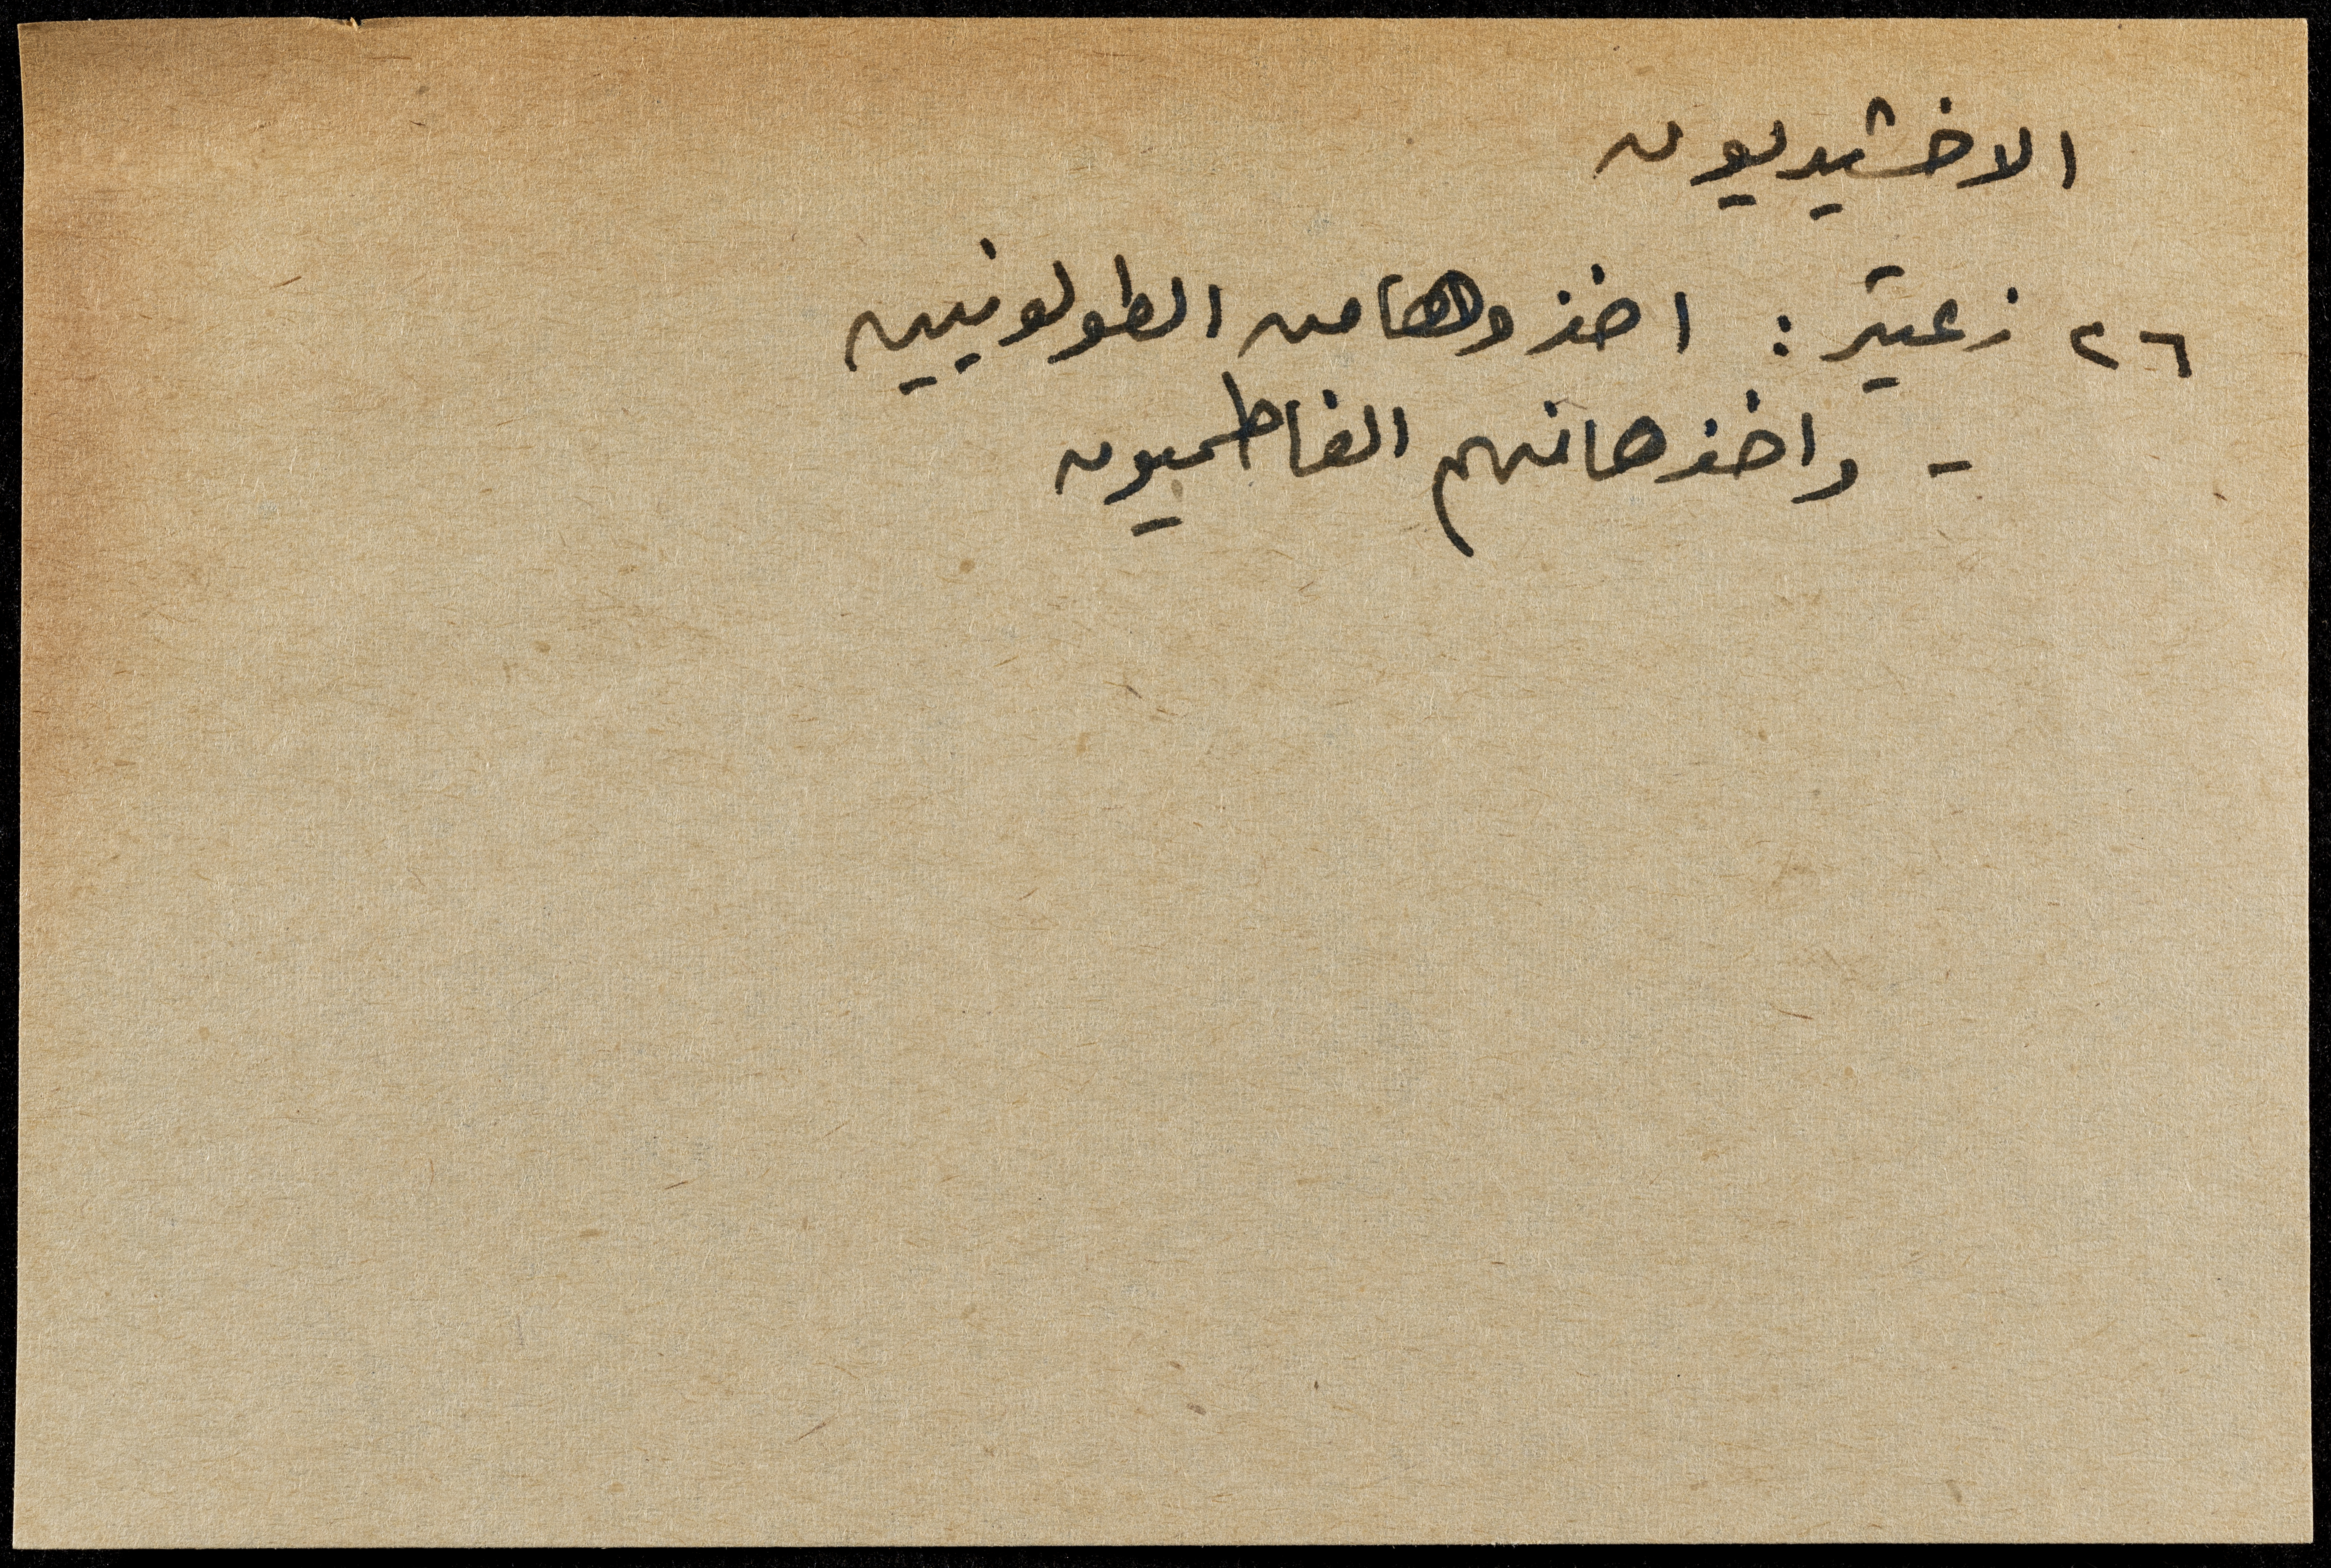 الاخشيديون
٢٦ زعيتر: اخذوها من الطولونيين
- واخذها منهم الفاطميون